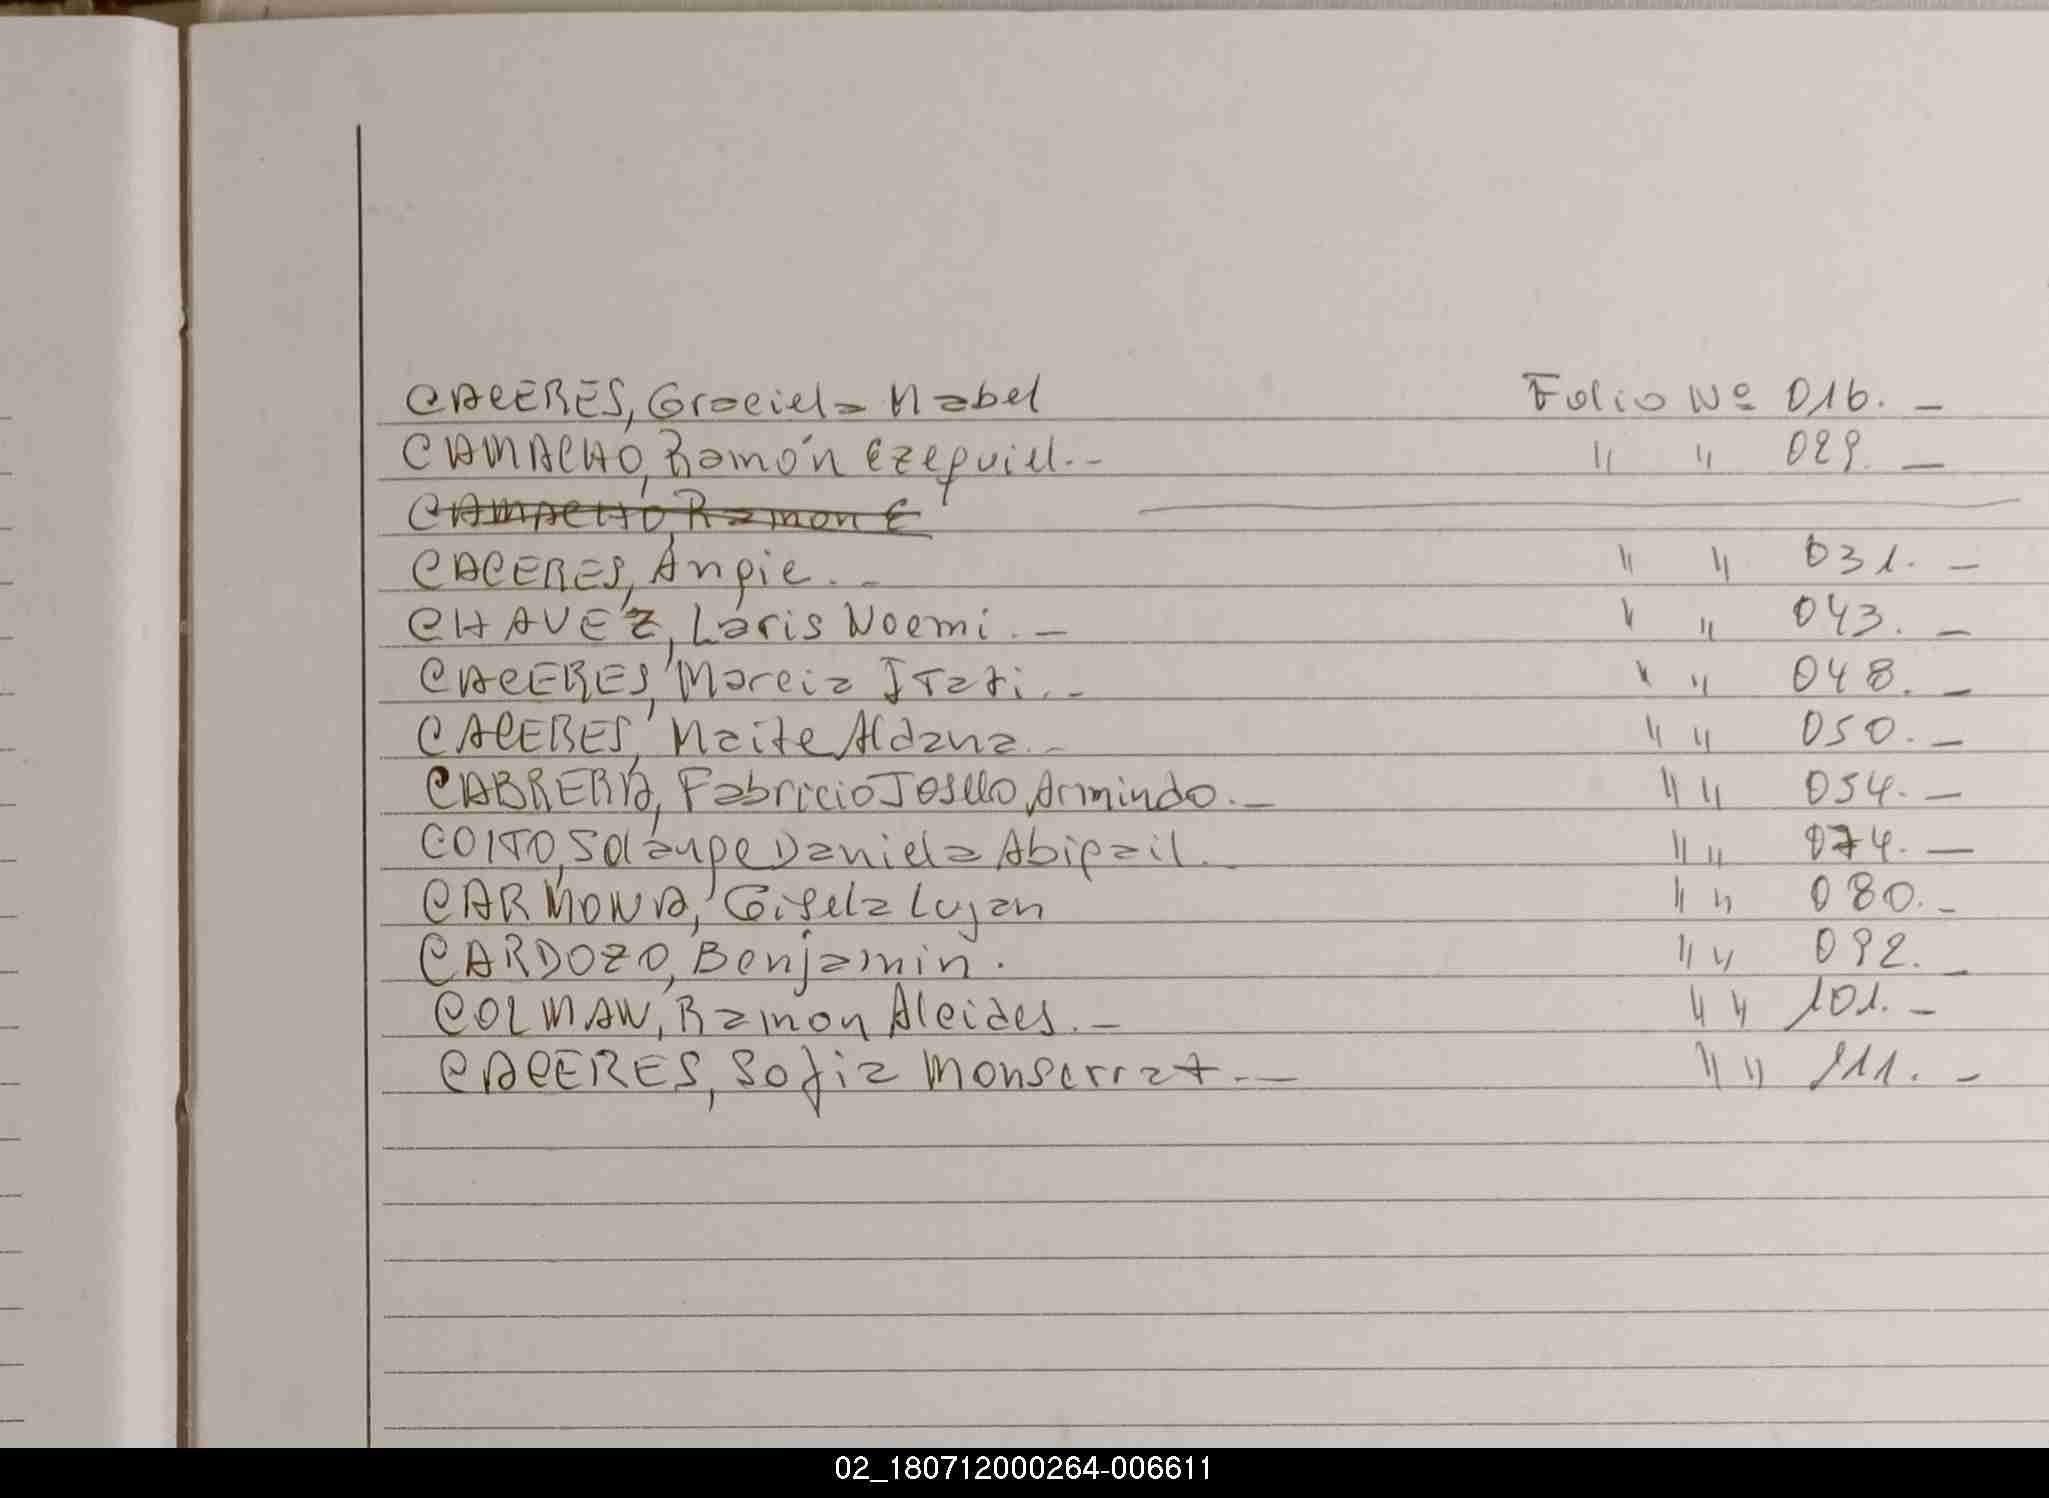 CACERES, Graciela Mabel Folio Nº 016. _
CAMACHO, Ramón Ezequiel. _ " " 029. _
CAMACHO, Ramon E
CACERES, Angie. _ " " 031. _
CHAVEZ, Laris Noemi. _ " " 043. _
CACERES, Marcia Itati. _ " " 048. _
CACERES, Maite Aldana. _ " " 050. _
CABRERA, Fabricio Armindo. _ " " 054. _
COITO, Solange Daniela Abigail. _ " " 074. _
CARMONA, Gisela Lujan " " 080. _
CARDOZO, Benjamin. " " 092. _
COLMAN, Ramon Alcides. _ " " 101. _
CACERES, Sofia Monserrat. _ " " 111. _
02_180712000264-006611